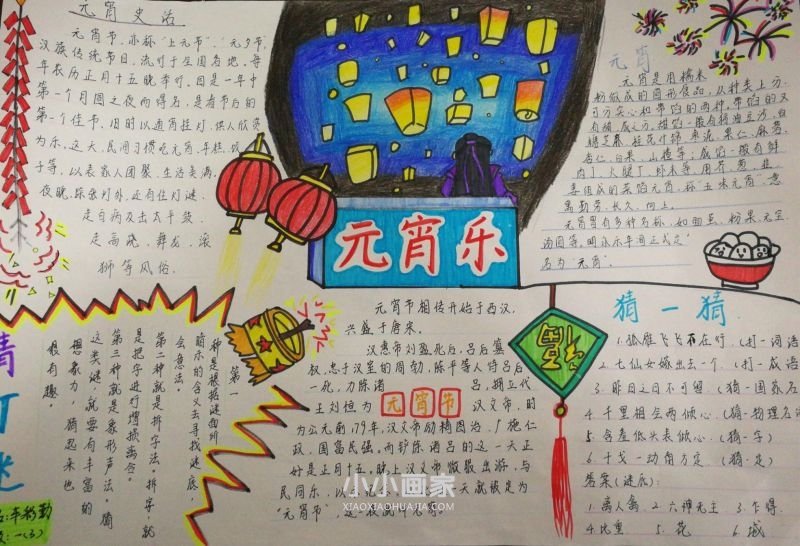 元宵史话
元宵节,亦称"上元节"、"元夕节"
汉族传统节日,流行于全国各地,每
年农历正月十五晚举行,因是一年中
第一个月圆之夜而得名,是春节后的
第一个佳节,旧时以通宵挂灯,供人欣赏
为乐,这天,民间习惯吃元宵,年糕,饺
子等,以表家人团聚,生活美满.
夜晚,除张灯外,还有住灯谜.
走百病及击太平鼓.
走高跷,舞龙,滚
狮等风俗.
元宵乐
元宵
元宵是用糯米
粉做成的圆形食品,从种类上分,
可分实心和带馅的两种,带馅的又
有甜、咸之分,甜馅一般有猪油豆沙,白
糖芝麻,桂花什锦,枣泥,果仁,麻蓉,
杏仁,白果,山楂等;咸馅一般有鲜
肉丁,火腿丁,虾米等.用芥,葱,韭,
姜组成的菜馅元宵,称"五味元宵",意
寓勤劳,长久,向上.
元宵署有多种名称,如面茧,粉果,元宝,
汤圆等,明永乐年间正式定
名为"元宵".
猜灯谜
第一
种是根据谜面所
萌示的含义去寻找谜底,
会意法,
第二种就是拆字法,拆字就
是把字进行增损离合,
第三种就是象形声法,猜
这类谜,就要有丰富的
想象力,猜起来也
很有趣.
元宵节相传开始于西汉,
兴盛于唐宋.
汉惠帝刘盈死后,吕后篡
权,忠于汉室的周勃,陈平等人待吕后
一死,力除诸吕,拥立代
王刘恒为
元宵节
汉文帝,时
为公元前179年,汉文帝励精图治,广施仁
政,国富民强,而铲除诸吕的这一天正
好是正月十五,晚上汉文帝微服出游,与
民同乐,以
天就被定为
"元宵节",这一
福
猜一猜
1.孤雁飞飞不在行.(打一词语
2.七仙女嫁出去一个.(打一成语
3.昨日之日不可留.(猜一国家名
4.千里相会两倾心.(猜一物理名词
5.含羞低头表倾心.(猜一字)
6.十戈一动角方定.(猜一足)
答案(谜底):
1.离人禽 2.六神无主 3.乍得
4.比重 5.花 6.城
小小画家
XIAOXIAOHUAJIA.COM